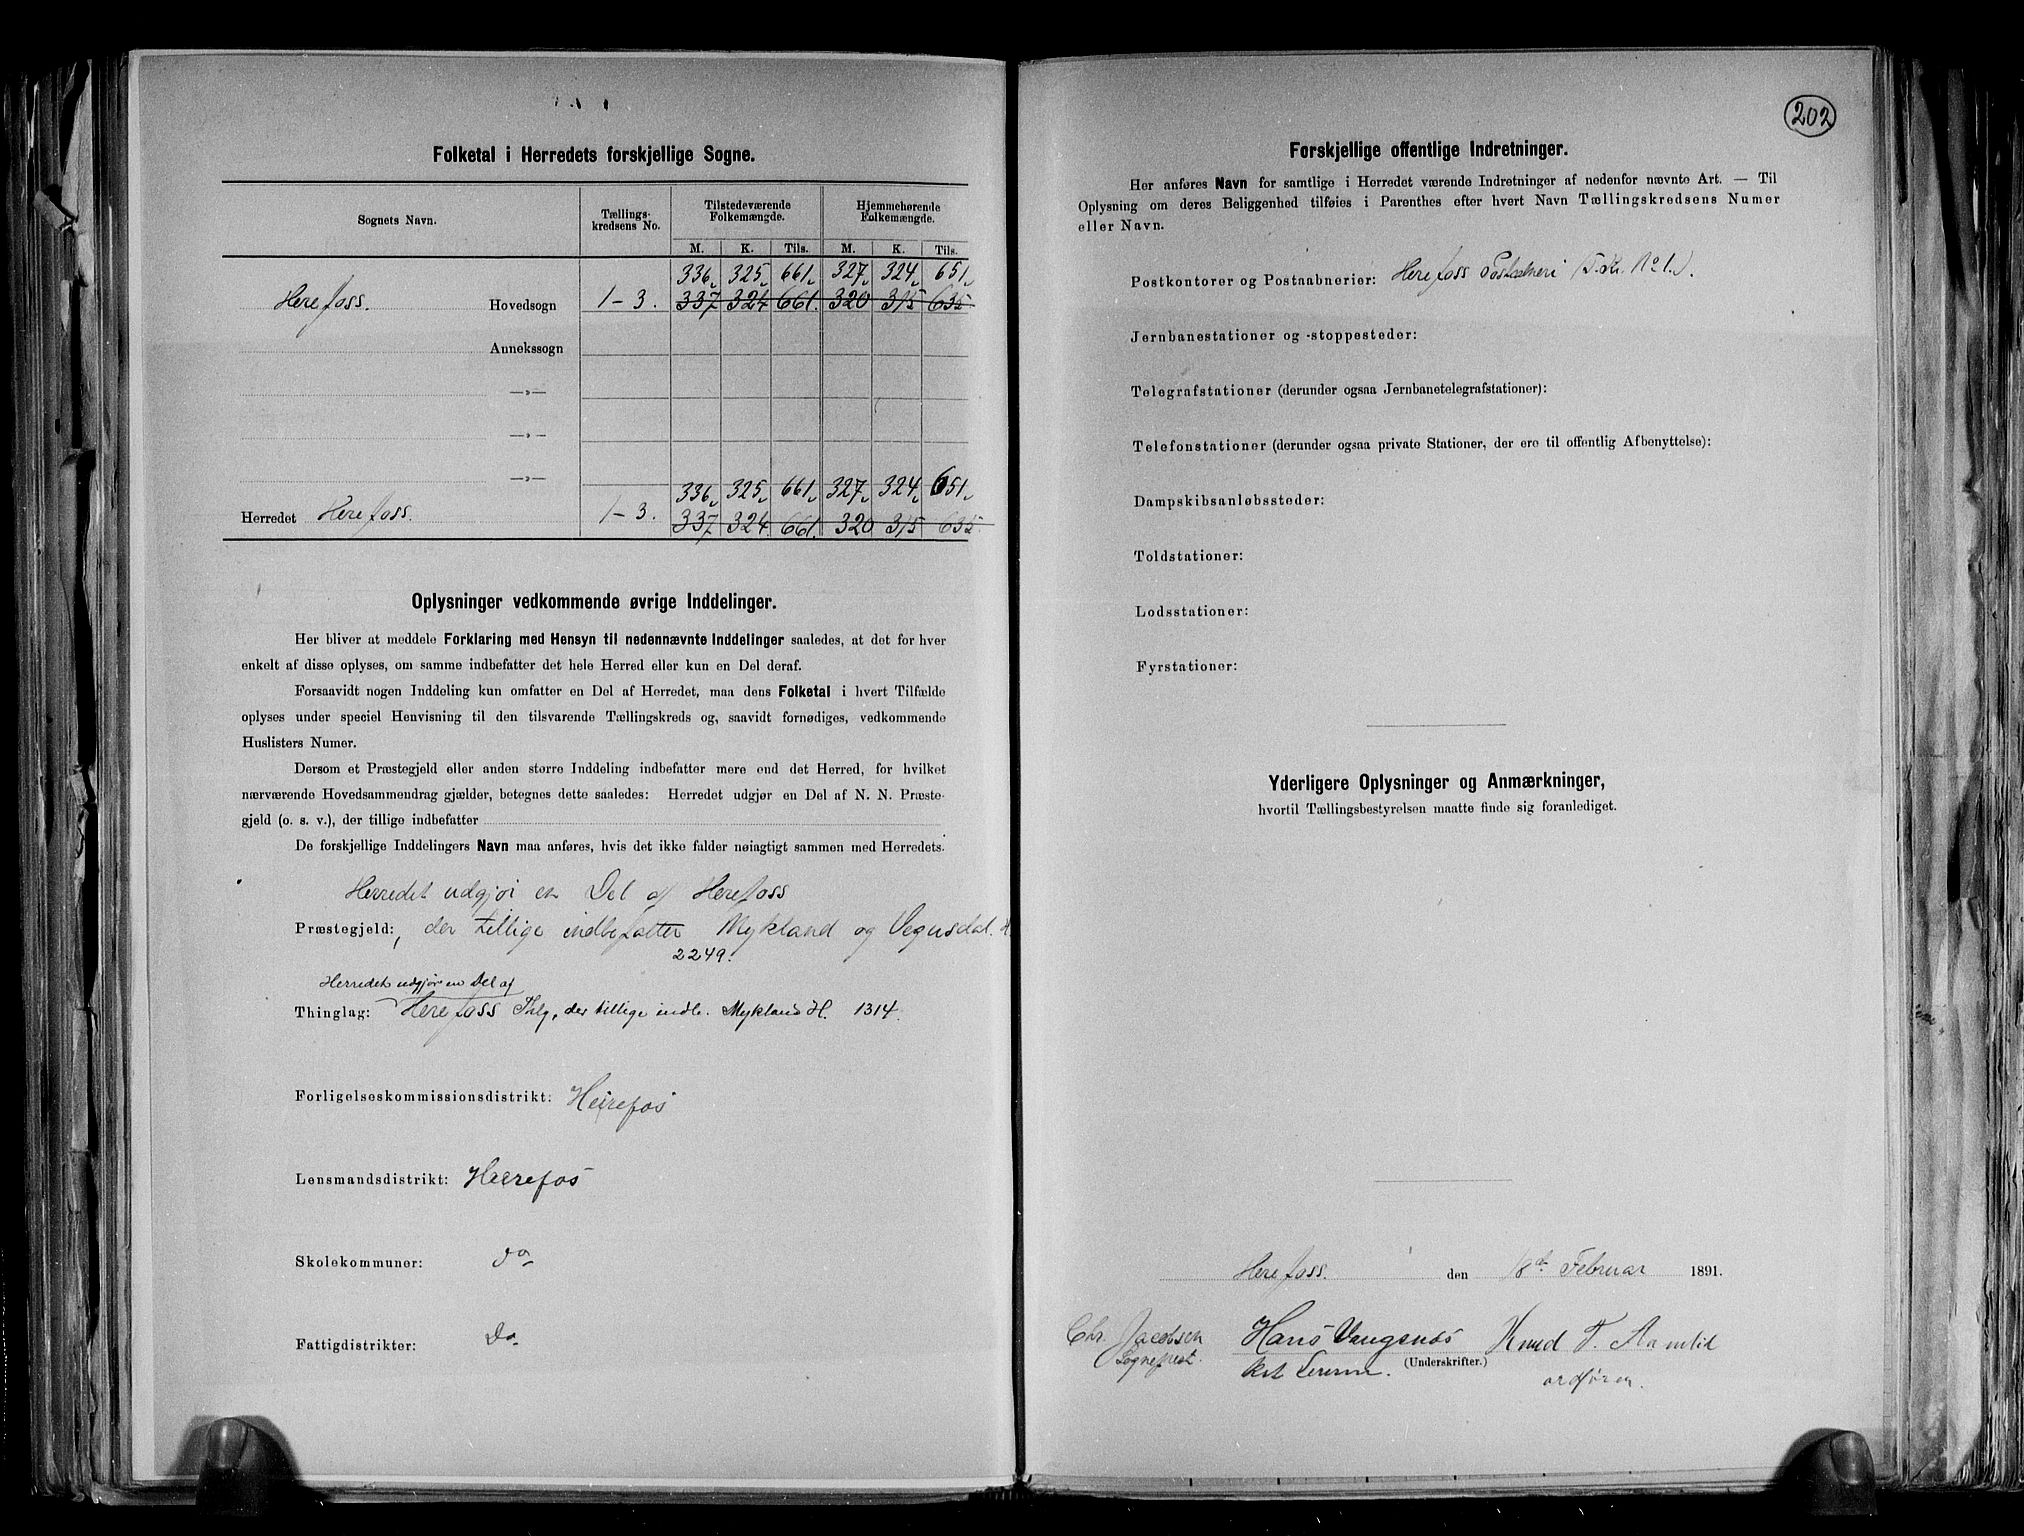 Folketal i Herredets forskjellige Sogne.
Sognets Navn.
Tællings-
kredsens No.
Tilstedeværende
Folkemængde.
Hjemmehørende
Folkemængde.
M. K. Tils. M. K. Tils.
336 325 661 327 324 651
Herefoss. Hovedsogn 1-3. 337 324 661. 320 315 635
Annekssogn
—»—
—»—
—»—
336 325 661 327 324 651
Herredet Herefoss. 1-3. 337 324 661. 320 315 635
Oplysninger vedkommende øvrige Inddelinger.
Her bliver at meddele Forklaring med Hensyn til nedennævnte Inddelinger saaledes, at det for hver
enkelt af disse oplyses, om samme indbefatter det hele Herred eller kun en Del deraf.
Forsaavidt nogen Inddeling kun omfatter en Del af Herredet, maa dens Folketal i hvert Tilfælde
oplyses under speciel Henvisning til den tilsvarende Tællingskreds og, saavidt fornødiges, vedkommende
Huslisters Numer.
Dersom et Præstegjeld eller anden større Inddeling indbefatter mere end det Herred, for hvilket
nærværende Hovedsammendrag gjælder, betegnes dette saaledes: Herredet udgjør en Del af N. N. Præste-
gjeld (o. s. v.), der tillige indbefatter
De forskjellige Inddelingers Navn maa anføres, hvis det ikke falder nøiagtigt sammen med Herredets.
Herredet udgjør en Del af Herefoss
Præstegjeld: , der tillige indbefatter Mykland og Vegusdal. H.
2249.
Herredet udgjør en Del af
Thinglag: Herefoss Thlg, der tillige indb. Mykland H. 1314.
Forligelseskommissionsdistrikt: Heirefos
Lensmandsdistrikt: Heirefos
Skolekommuner: do
Fattigdistrikter: Do
202
Forskjellige offentlige Indretninger.
Her anføres Navn for samtlige i Herredet værende Indretninger af nedenfor nævnte Art. — Til
Oplysning om deres Beliggenhed tilføies i Parenthes efter hvert Navn Tællingskredsens Numer
eller Navn.
Postkontorer og Postaabnerier: Herefoss Postaabneri (T. Kr. No 1.).
Jernbanestationer og -stoppesteder:
Telegrafstationer (derunder ogsaa Jernbanetelegrafstationer):
Telefonstationer (derunder ogsaa private Stationer, der ere til offentlig Afbenyttelse):
Dampskibsanløbssteder:
Toldstationer:
Lodsstationer:
Fyrstationer:
Yderligere Oplysninger og Anmærkninger,
hvortil Tællingsbestyrelsen maatte finde sig foranlediget.
Herefoss. den 18de Februar 1891.
Chr. Jacobsen Hans Vangsnes Knud T. Aamlid
Sogneprest. (Underskrifter.)
ordfører.